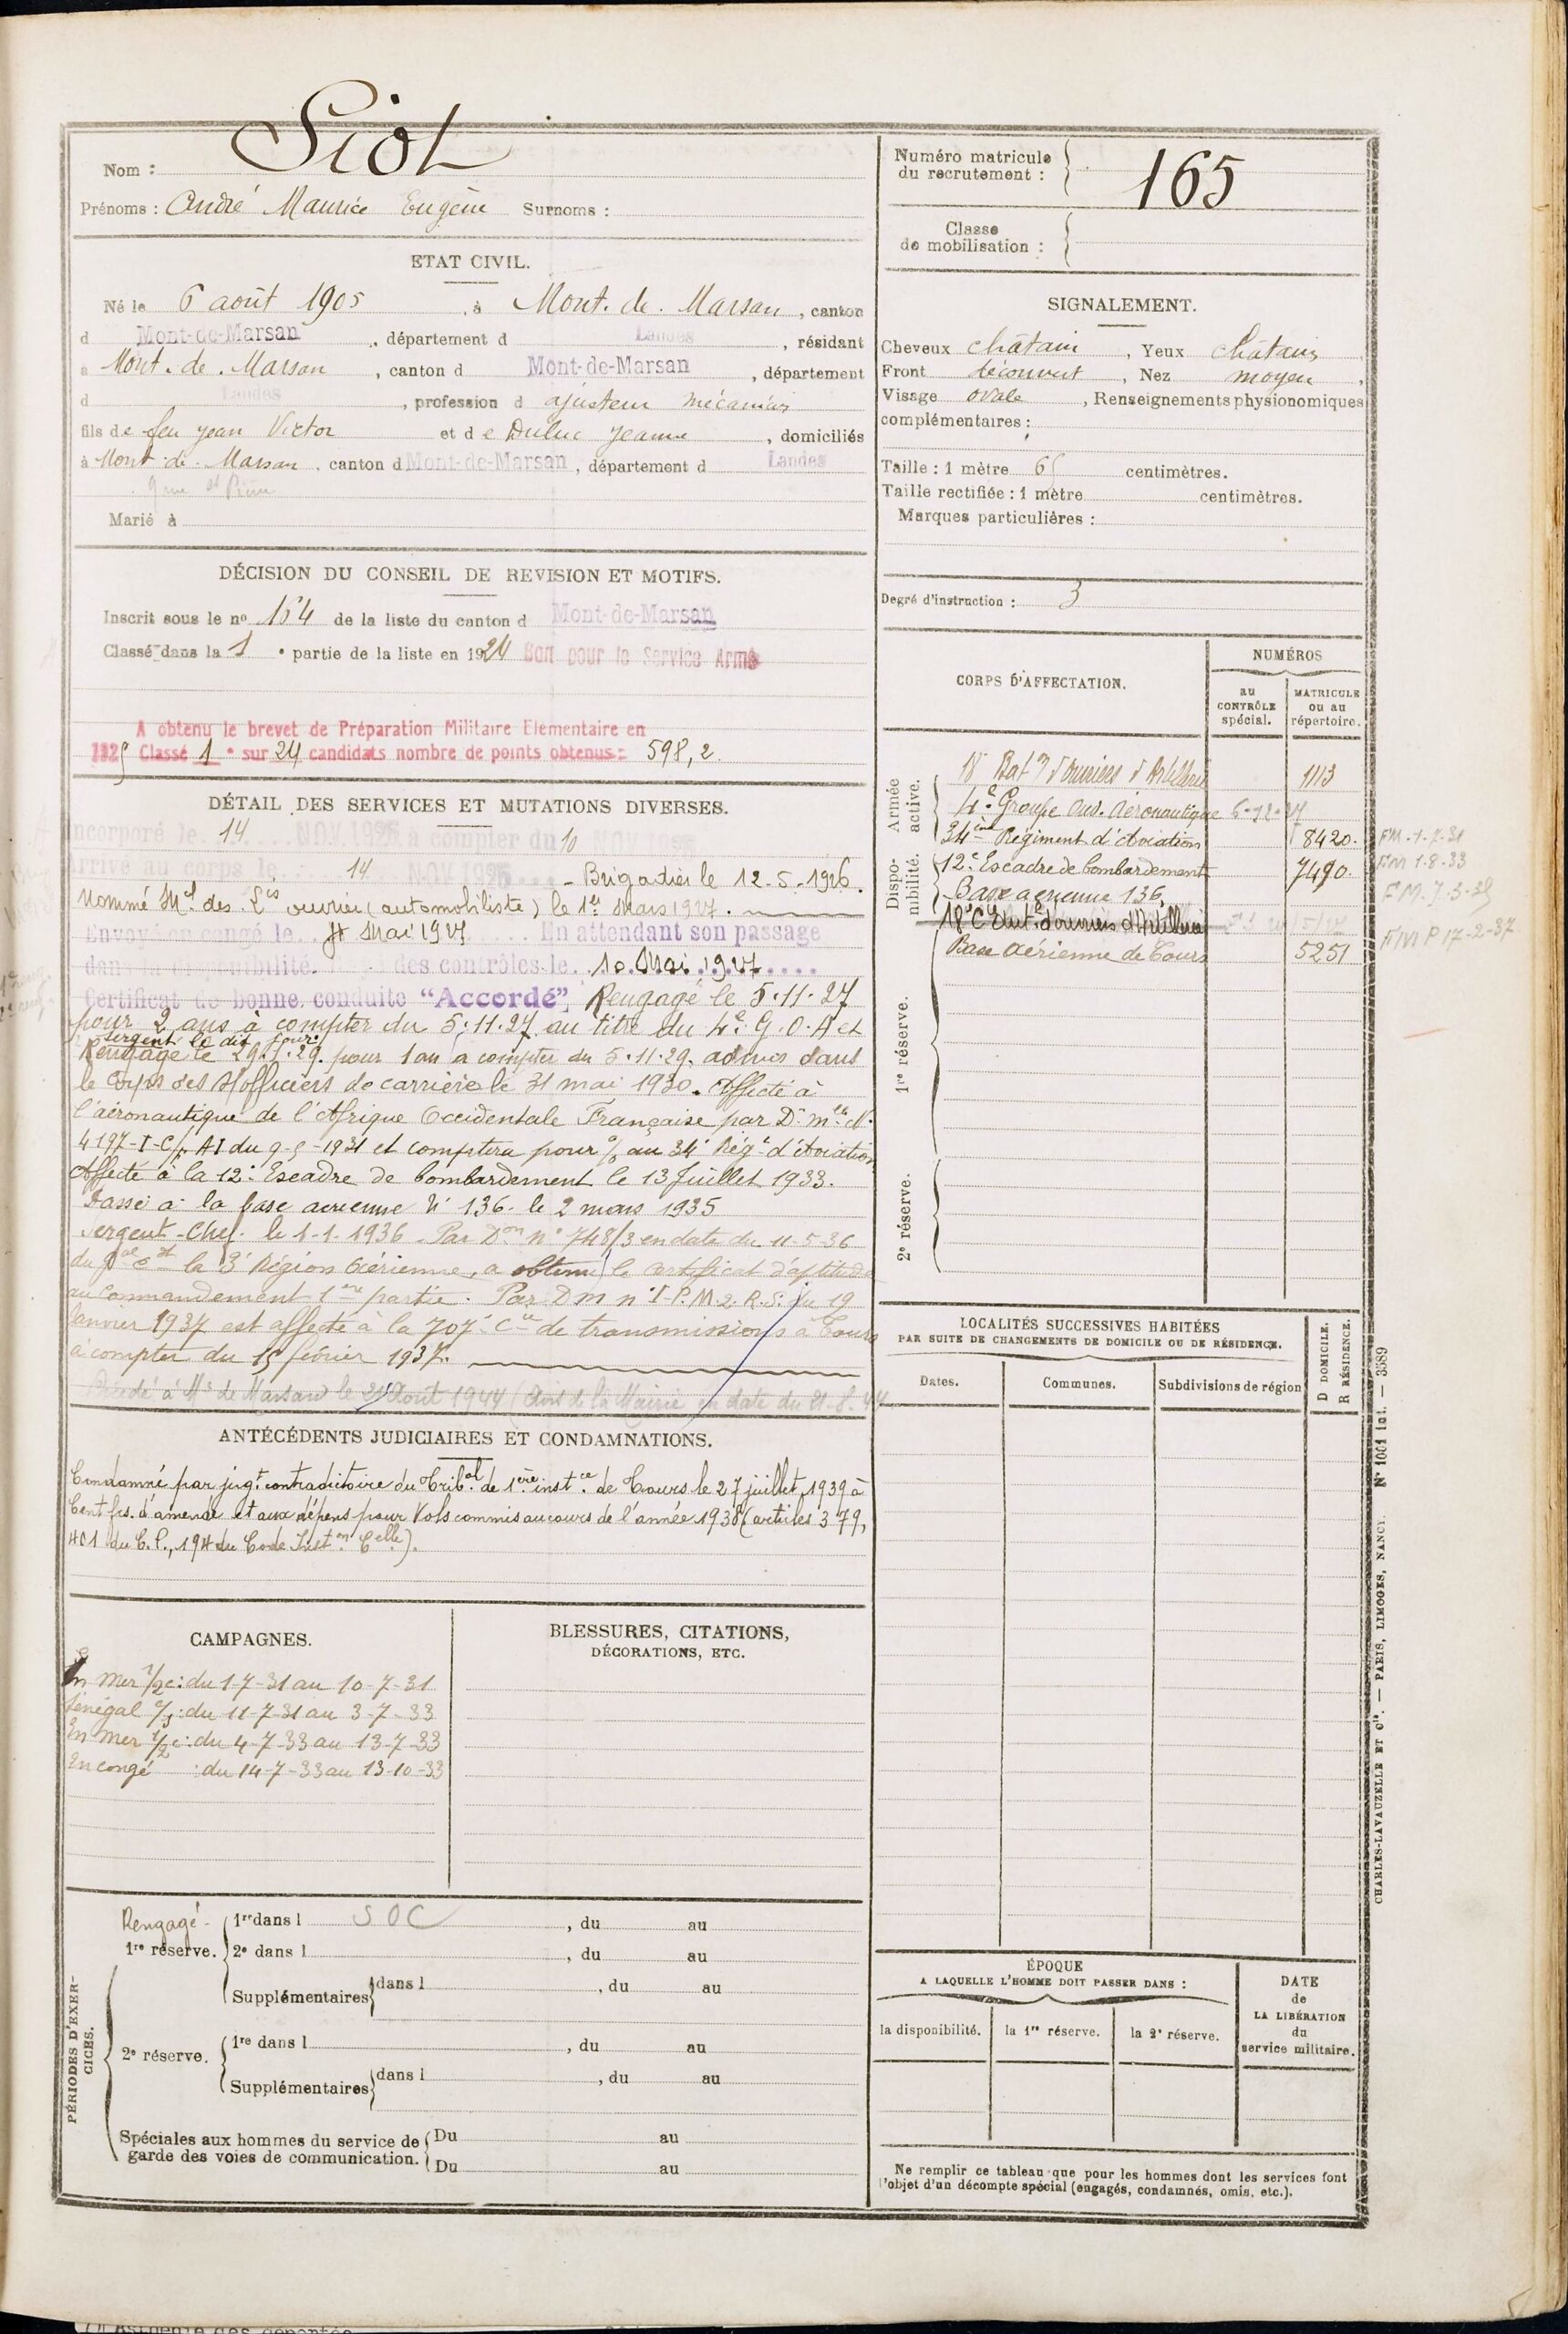 Nom : Siot
Prénoms : André Maurice Eugène Surnoms :
ETAT CIVIL.
Né le 6 août 1905, à Mont. de. Marsan, canton
d Mont-de-Marsan, département d Landes, résidant
à Mont. de. Marsan, canton d Mont-de-Marsan, département
d Landes, profession d ajusteur mécanicien
fils de feu Jean Victor et de Duluc Jeanne, domiciliés
à Mont-de-Marsan, canton d Mont-de-Marsan, département d Landes
9 rue St Pierre
Marié à
DÉCISION DU CONSEIL DE REVISION ET MOTIFS.
Inscrit sous le no 154 de la liste du canton d Mont-de-Marsan
Classé dans la 1e partie de la liste en 1924 Bon pour le Service Armé
A obtenu le brevet de Préparation Militaire Elémentaire en
1925 Classé 1e sur 24 candidats nombre de points obtenus : 598,2.
DÉTAIL DES SERVICES ET MUTATIONS DIVERSES.
Incorporé le 14 NOV 1925 à compter du 10 NOV 1925
Arrivé au corps le 14 NOV 1925 - Brigadier le 12-5-1926.
Nommé Mal des Lis ouvrier (automobiliste) le 1er Mars 1927.
Envoyé en congé le Mai 1927 En attendant son passage
dans la disponibilité. des contrôles le 10 Mai 1927
Certificat de bonne conduite "Accordé", Rengagé le 5.11.27
pour 2 ans à compter du 5.11.27 au titre du 4e G.O.A et
sergent le dit jour.
Rengagé le 29. .29. pour 1 an à compter du 5.11.29. admis dans
le Corps des S/officiers de carrière le 31 mai 1930. Affecté à
l'aéronautique de l'Afrique Occidentale Française par D. mlle N°
4197-I-C/ AI du 9-5-1931 et comptera pour o/o au 34e Régt d'Aviation
Affecté à la 12e Escadre de bombardement le 13 Juillet 1933.
Passé à la base aérienne N° 136. le 2 mars 1935
Sergent-Chef. le 1-1-1936. Par Don n° 748/3 en date du 11-5-36
du Gal Ct la 3e Région Aérienne, a obtenu le certificat d'aptitude
au Commandement 1ere partie. Par Dm n° I-P.M.2.R.S. du 19
Janvier 1937 est affecté à la 707e Cie de transmissions à Tours
à compter du 15 février 1937.
Décédé à Mt de Marsan le 21 Août 1944 (Avis de la Mairie en date du 21-8-44
ANTÉCÉDENTS JUDICIAIRES ET CONDAMNATIONS.
Condamné par jugt contradictoire du Tribal de 1ère instce de Tours le 27 juillet 1939 à
Cent frs. d'amende et aux dépens pour Vols commis au cours de l'année 1938 (articles 379,
401 du C.P., 194 du Code Inston Celle).
CAMPAGNES.
En mer 1/2c : du 1-7-31 au 10-7-31
Sénégal : du 11-7-31 au 3-7-33
En mer 1/2c : du 4-7-33 au 13-7-33
En congé : du 14-7-33 au 13-10-33
BLESSURES, CITATIONS,
DÉCORATIONS, ETC.
PÉRIODES D'EXERCICES.
Rengagé - 1re dans l SOC, du au
1re réserve. 2e dans l, du au
Supplémentaires dans l, du au
2e réserve. 1re dans l, du au
Supplémentaires dans l, du au
Spéciales aux hommes du service de garde des voies de communication. Du au
Du au
Numéro matricule
du recrutement : 165
Classe
de mobilisation :
SIGNALEMENT.
Cheveux châtain, Yeux châtains
Front découvert, Nez moyen,
Visage ovale, Renseignements physionomiques
complémentaires :
Taille : 1 mètre 65 centimètres.
Taille rectifiée : 1 mètre centimètres.
Marques particulières :
Degré d'instruction : 3
CORPS D'AFFECTATION.
NUMÉROS
au CONTRÔLE spécial.
MATRICULE ou au répertoire.
Armée active.
18 Batn d'ouvriers d'Artillerie 1113
4e Groupe Ouv. Aéronautique 6-12-27
34ème Régiment d'Aviation 8420. FM.-1-7-31
Disponibilité.
12e Escadre de bombardement 7490. FM 1-8-33
Base aérienne 136. FM. 7-3-35
18e Cie d'ouvriers d'Artillerie
Base Aérienne de Tours 5251 FM P 17-2-37
1re réserve.
2e réserve.
LOCALITÉS SUCCESSIVES HABITÉES
PAR SUITE DE CHANGEMENTS DE DOMICILE OU DE RÉSIDENCE.
D DOMICILE.
R RÉSIDENCE.
Dates. Communes. Subdivisions de région
ÉPOQUE
A LAQUELLE L'HOMME DOIT PASSER DANS :
la disponibilité. la 1re réserve. la 2e réserve.
DATE
de
LA LIBÉRATION
du
service militaire.
Ne remplir ce tableau que pour les hommes dont les services font
l'objet d'un décompte spécial (engagés, condamnés, omis, etc.).
CHARLES-LAVAUZELLE ET Cie. — PARIS, LIMOGES, NANCY. No 1001 int. — 3589